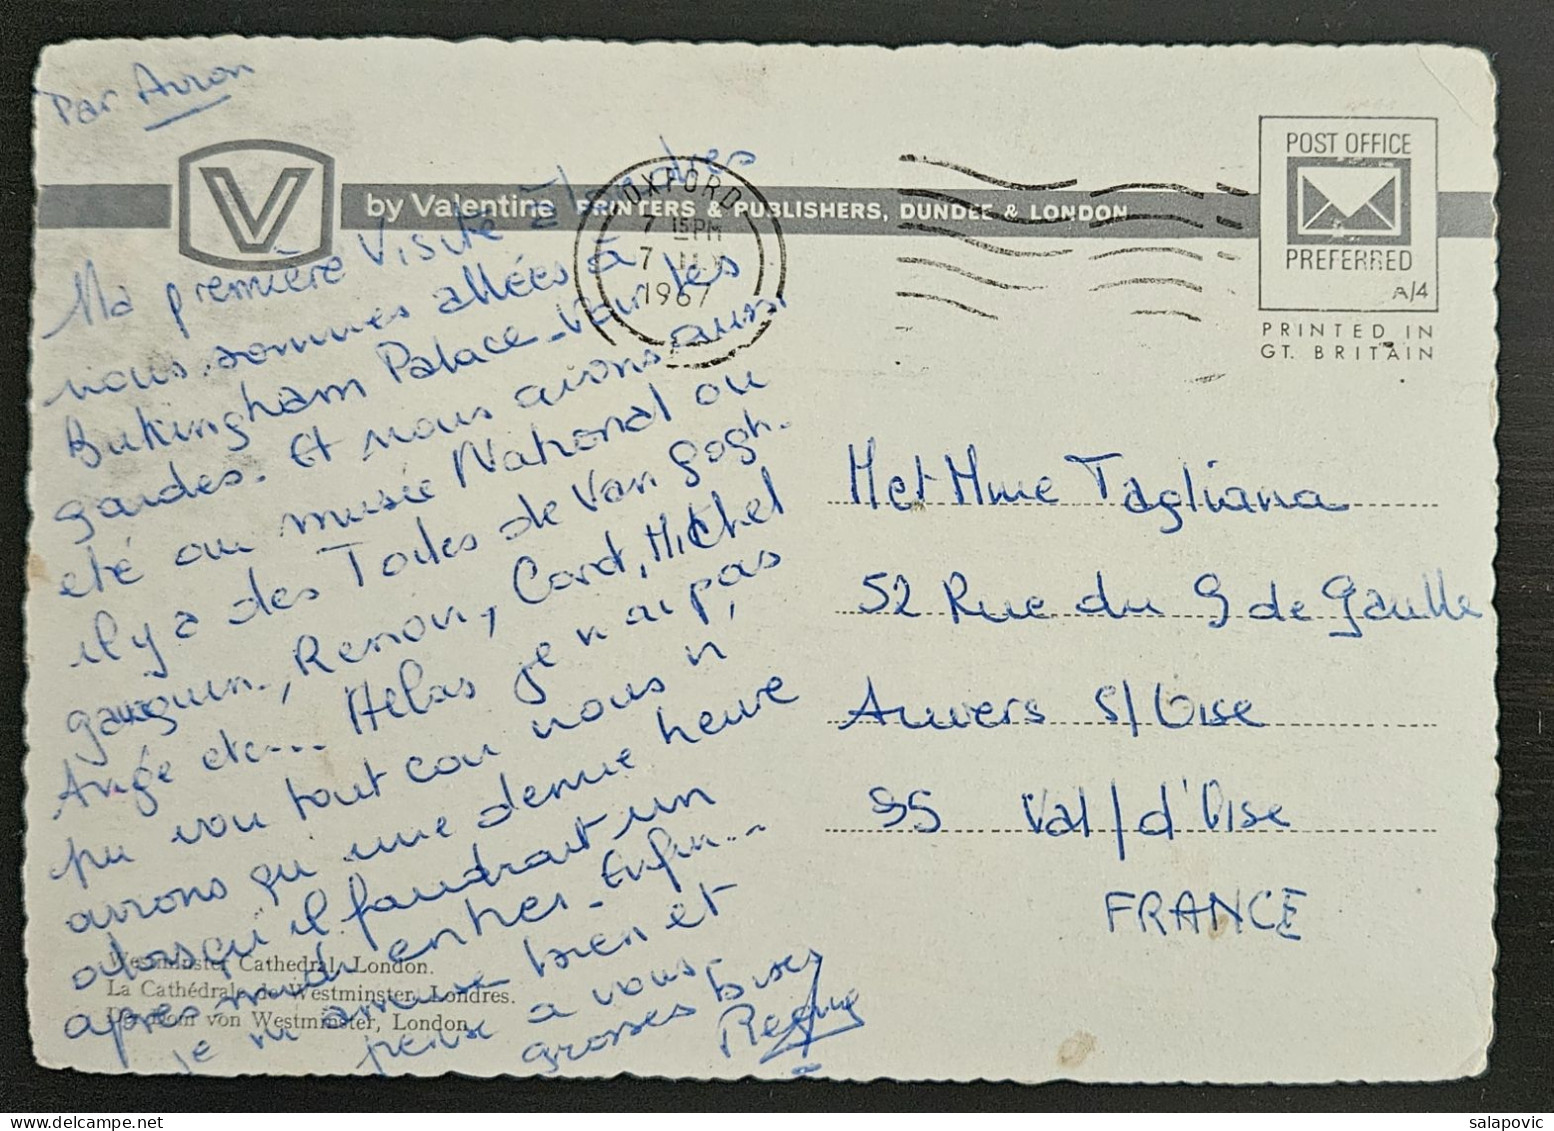 Par Avion
V
by Valentine PRINTERS & PUBLISHERS, DUNDEE & LONDON
OXFORD
7 15 PM
7
1967
POST OFFICE
PREFERRED
A/4
PRINTED IN
GT. BRITAIN
Ma première Visite à Londres
nous sommes allées à
Bukingham Palace voir les
gardes. Et nous avons aussi
eté au musée National ou
il y a des Toiles de Van Gogh.
gauguin, Renoir, Corot, Michel
Ange etc... Hélas je n'ai pas
pu voir tout car nous n'
avions qu'une demie heure
alors qu'il faudrait un
après-midi entier. Enfin...
je m'amuse bien et
pense à vous.
grosses bises
Regine
M et Mme Tagliana
52 Rue du G de Gaulle
Auvers s/ Oise
95 Val / d'Oise
FRANCE
Westminster Cathedral, London.
La Cathédrale de Westminster, Londres.
Der Dom von Westminster, London.
salapovic